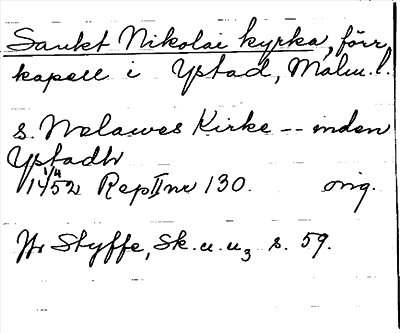 Sankt Nikolai kyrka, förr
kapell i Ystad, Malm. l.
s. Nolawes Kirke -- inden
Ystadh
1/4 1452 Rep II nr 130. orig.
Jfr Styffe, Sk. u. u3 s. 59.